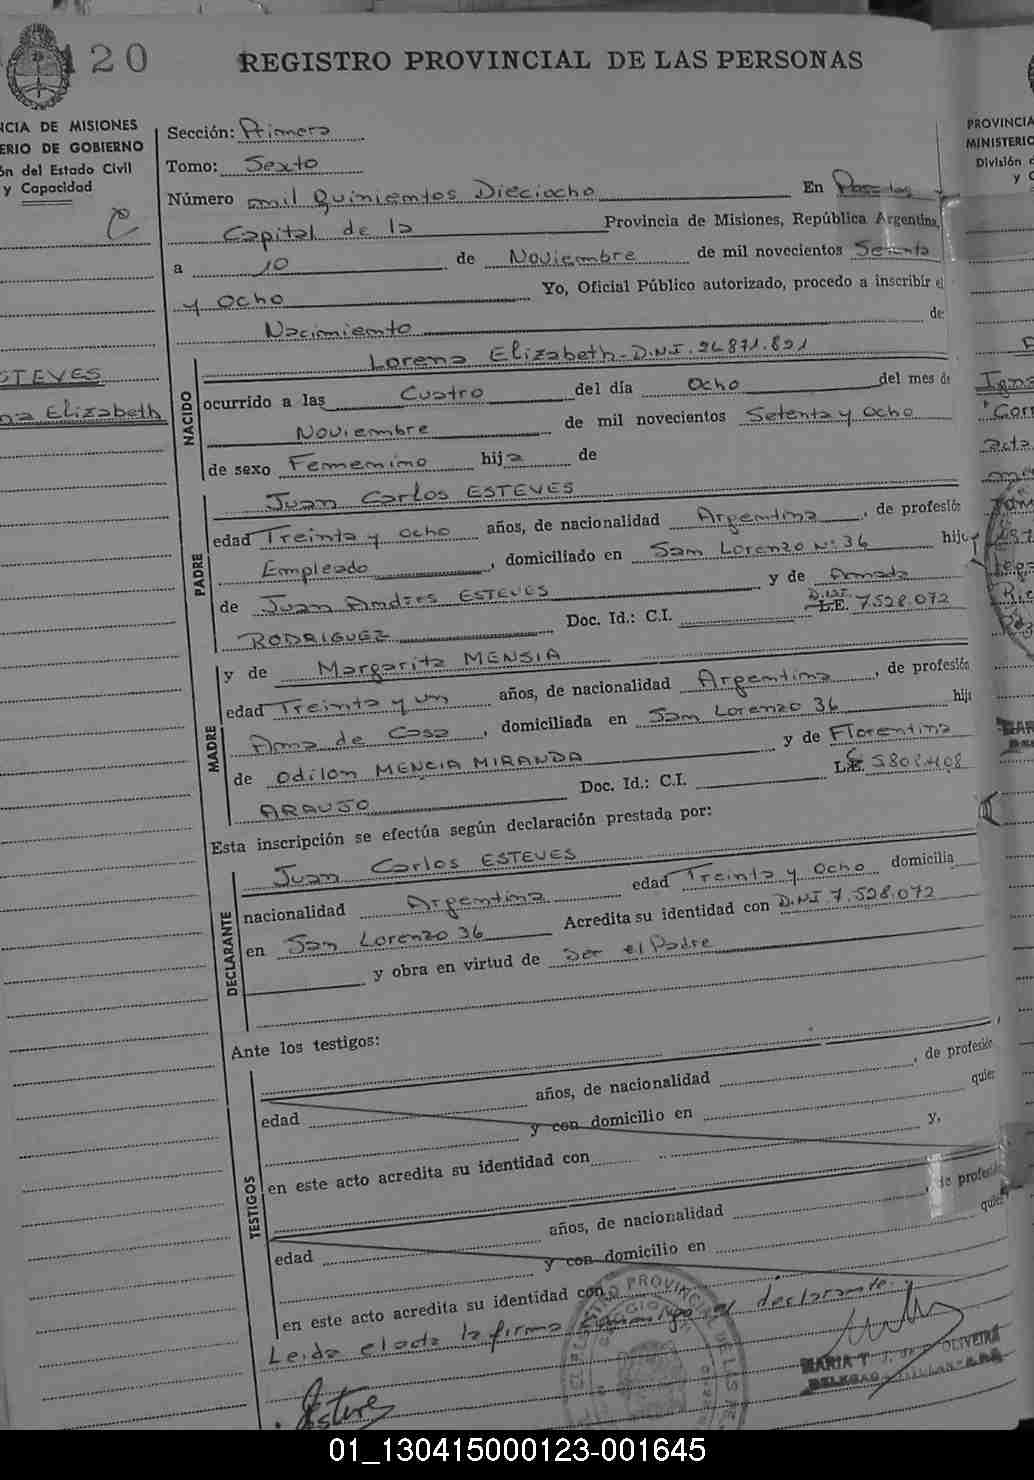 120
REGISTRO PROVINCIAL DE LAS PERSONAS
NCIA DE MISIONES
ERIO DE GOBIERNO
ón del Estado Civil
y Capacidad
Sección: Primera
Tomo: Sexto
Número mil Quinientos Dieciocho En Posadas
Capital de la Provincia de Misiones, República Argentina,
a 10 de Noviembre de mil novecientos Setenta
y Ocho Yo, Oficial Público autorizado, procedo a inscribir el
Nacimiento de:
STEVES
na Elizabeth
NACIDO
Lorena Elizabeth - D.N.I. 26.871.821
ocurrido a las Cuatro del día Ocho del mes de
Noviembre de mil novecientos Setenta y Ocho
de sexo Femenino hija de
PADRE
Juan Carlos ESTEVES
edad Treinta y ocho años, de nacionalidad Argentina, de profesión
Empleado, domiciliado en San Lorenzo Nº 36 hijo
de Juan Andres ESTEVES y de Amada
RODRIGUEZ Doc. Id.: C.I. D.N.I. L.E. 7.528.072
MADRE
y de Margarita MENSIA
edad Treinta y un años, de nacionalidad Argentina, de profesión
Ama de Casa, domiciliada en San Lorenzo 36 hija
de Odilon MENCIA MIRANDA y de Florentina
ARAUJO Doc. Id.: C.I. L.C. 5.801.408
Esta inscripción se efectúa según declaración prestada por:
DECLARANTE
Juan Carlos ESTEVES
nacionalidad Argentina edad Treinta y Ocho domicilia
en San Lorenzo 36 Acredita su identidad con D.N.I. 7.528.072
y obra en virtud de Ser el Padre
Ante los testigos:
TESTIGOS
edad años, de nacionalidad, de profesión
y con domicilio en quien
en este acto acredita su identidad con y,
edad años, de nacionalidad, de profesión
y con domicilio en quien
en este acto acredita su identidad con
Leida el acta la firma conmigo el declarante.
Esteve
MARIA T. J. de OLIVEIRA
REGISTRO PROVINCIAL DE LAS
PROVINCIA
MINISTERIO
División d
y C
01_130415000123-001645